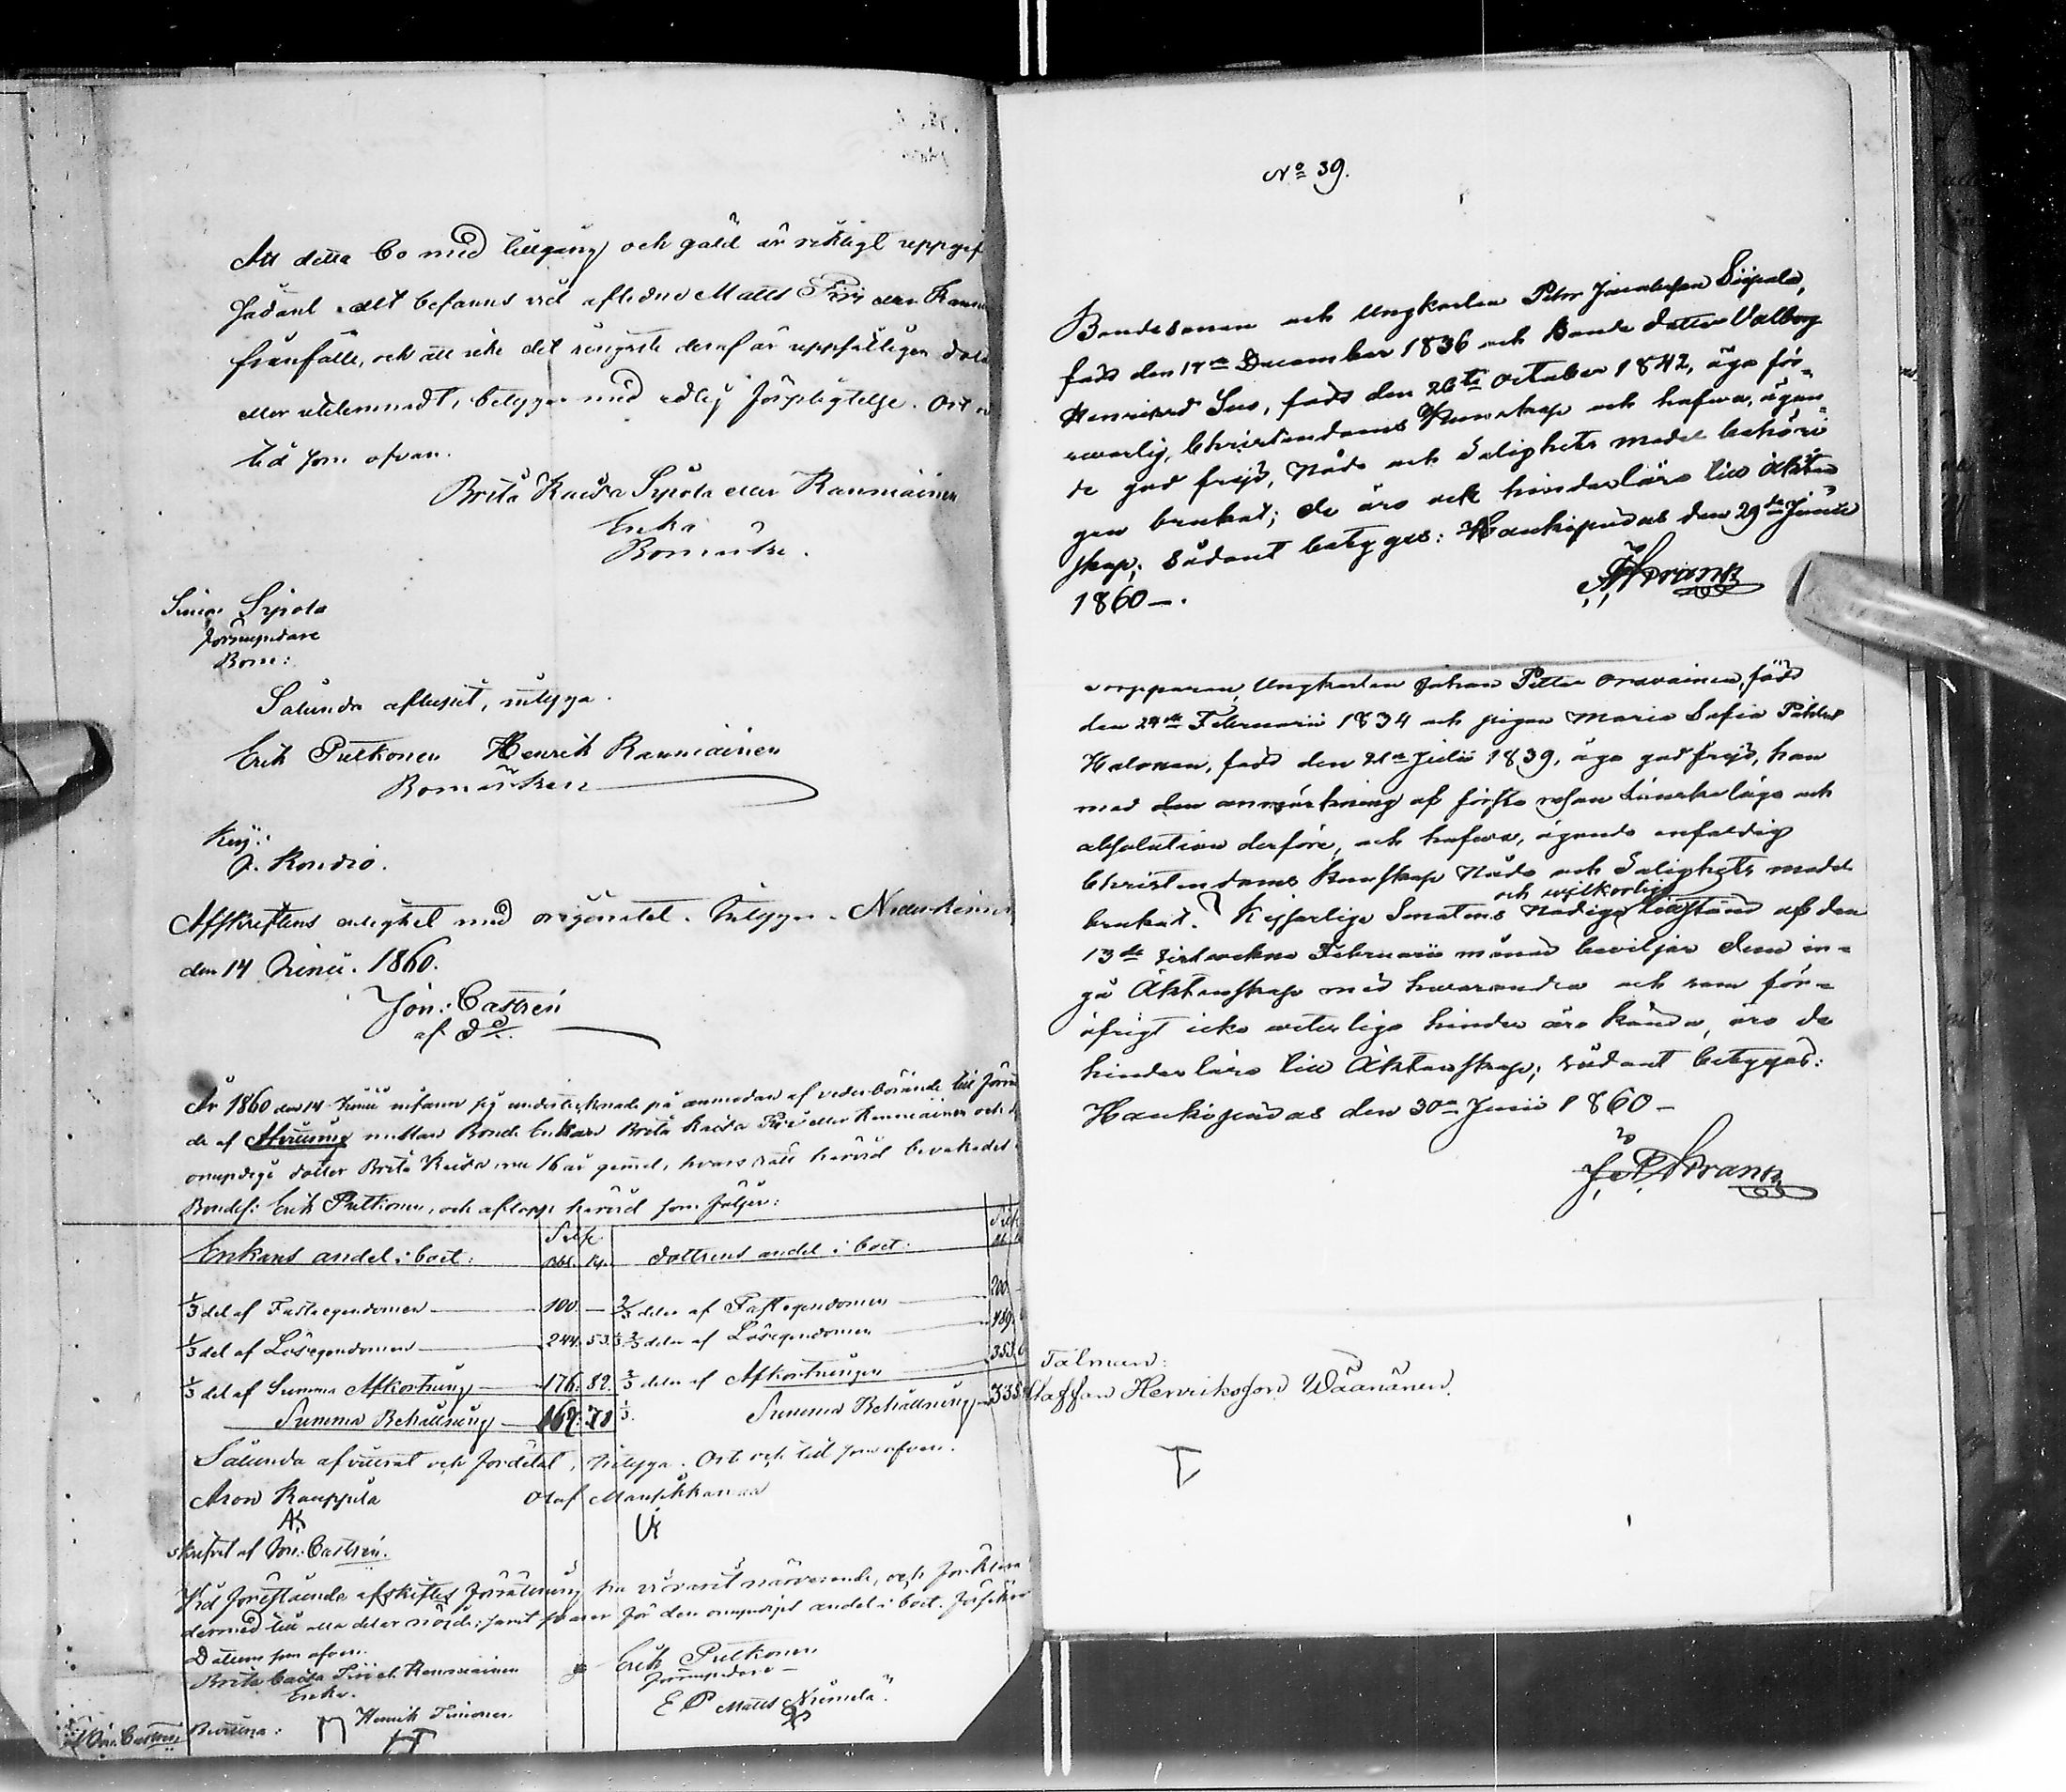 Att detta bo med tillgång och gäld är riktigt uppgif
sådant allt befanns vid aflidne Matts Piri eller Raun
frånfälle, och att icke det ringaste deraf är uppsåtligen dolt
eller utelemnadt, betygas med edlig förpligtelse. Ort o
tid som ofvan.
Brita Kaisa Sipola eller Rauniainen
Enka
Bomärke.
Sipola
förmyndare
Bom:
Sålunda aflusit, intyga.
Erik Pulkonen Henrik Rauniainen
Bomärken
Afskriftens enlighet med originalet. Intygar.
den 14 Junii. 1860.
Jon: Castrén
År 1860 den 14 Junii infann sig undertecknade på anmodan af vederbörande till
de af Afvittring mellan Bonde Enkan Brita Kaisa Piri eller Rauniainen och
omyndiga dotter Brita Kaisa nu 16 år gamal, hvars rätt härvid bevakades
Bondes: Erik Pulkonen, och aflopp härvid som följer:
Enkans andel i boet: Silfr. Rbl. Kp. Dottrens andel i boet: Silfr
1/3 del af Fasta egendomen 100. — 2/3 delar af Fastegendomen 200
1/3 del af Lösegendomen 244. 53 1/3 2/3 delar af Lösegendomen 489.
1/3 del af Summa Afkortning 176. 82. 2/3 delar af Afkortningen 353.
Summa Behållning 167. 71 1/3. Summa Behållning 335
Sålunda afvittrat och fördelat, intyga. Ort och tid som ofvan.
Aron Kauppila Olof
AK
skrifvit af Jon. Castrén.
Vid föreståendes afskiftes förrättning ha vi varit närvarande, och förklara
dermed till alla delar nöjde; samt svarar för den omyndiges andel i boet. försäkra
Datum som ofvan.
Brita Caisa Piri el. Rauniainen Erik Pulkonen
Enka. förmyndare
E P Matts Niemelä
Bevittna: Henrik Timonen
Jon. Castrén

No 39.
Bondesonen och Ungkarlen Petter Jacobsson Siipola,
född den 17de December 1836 och Bonde dottren Valborg
Henriksd Suo, född den 26te October 1842, äga för-
swarlig Christendoms kunskap och hafwa, ägan-
de god frejd, Nåde och Salighets medel behöri
gen brukat; de äro ock hinderlöse till äkten
skap; sådant betygas: Haukipudas den 29de Junii
1860 —.
Ungkarlen Johan Petter Oravainen, född
den 24de Februarii 1834 och pigan Maria Sofia
Halonen, född den 21a Julii 1839, äga god frejd, han
med den anmärkning af första resan Lönskaläge och
absolution derföre, och hafwa, ägande enfaldig
Christendoms kunskap Nåde och Salighets medel
och wilkorliga
brukat. Kejserliga Senatens Nådiga tillstånd af den
13de sistwekne Februarii månad beviljar dem in-
gå Äktenskap med hwarandra och som för-
öfrigt icke weterliga hinder äro kända, äro de
hinderlöse till Äktenskap; sådant betygas:
Haukipudas den 30de Junii 1860 —
Talman:
Staffan Henriksson Wäänänen.